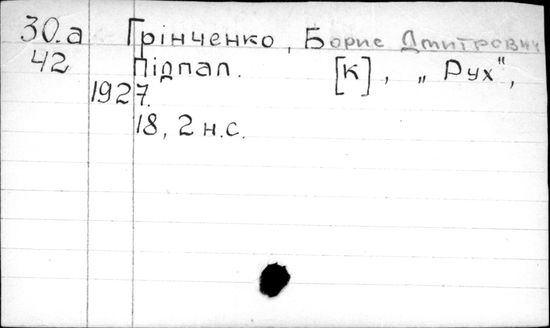 30.а Грінченко, Борис Дмитрович
42 Підпал. [К], „Рух",
1927.
18, 2 н.с.